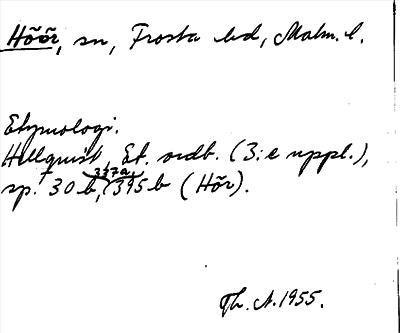 Höör, sn, Frosta hd, Malm. l.
Etymologi.
Hellquist, Et. ordb. (3:e uppl.),
sp. 30 b, 337a, 395 b (Hör).
Th. A. 1955.